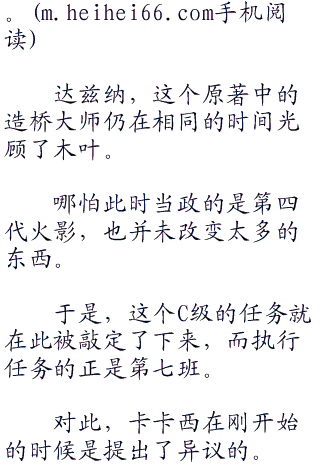 。(m.heihei66.com手机阅
读)
达兹纳，这个原著中的
造桥大师仍在相同的时间光
顾了木叶。
哪怕此时当政的是第四
代火影，也并未改变太多的
东西。
于是，这个C级的任务就
在此被敲定了下来，而执行
任务的正是第七班。
对此，卡卡西在刚开始
的时候是提出了异议的。